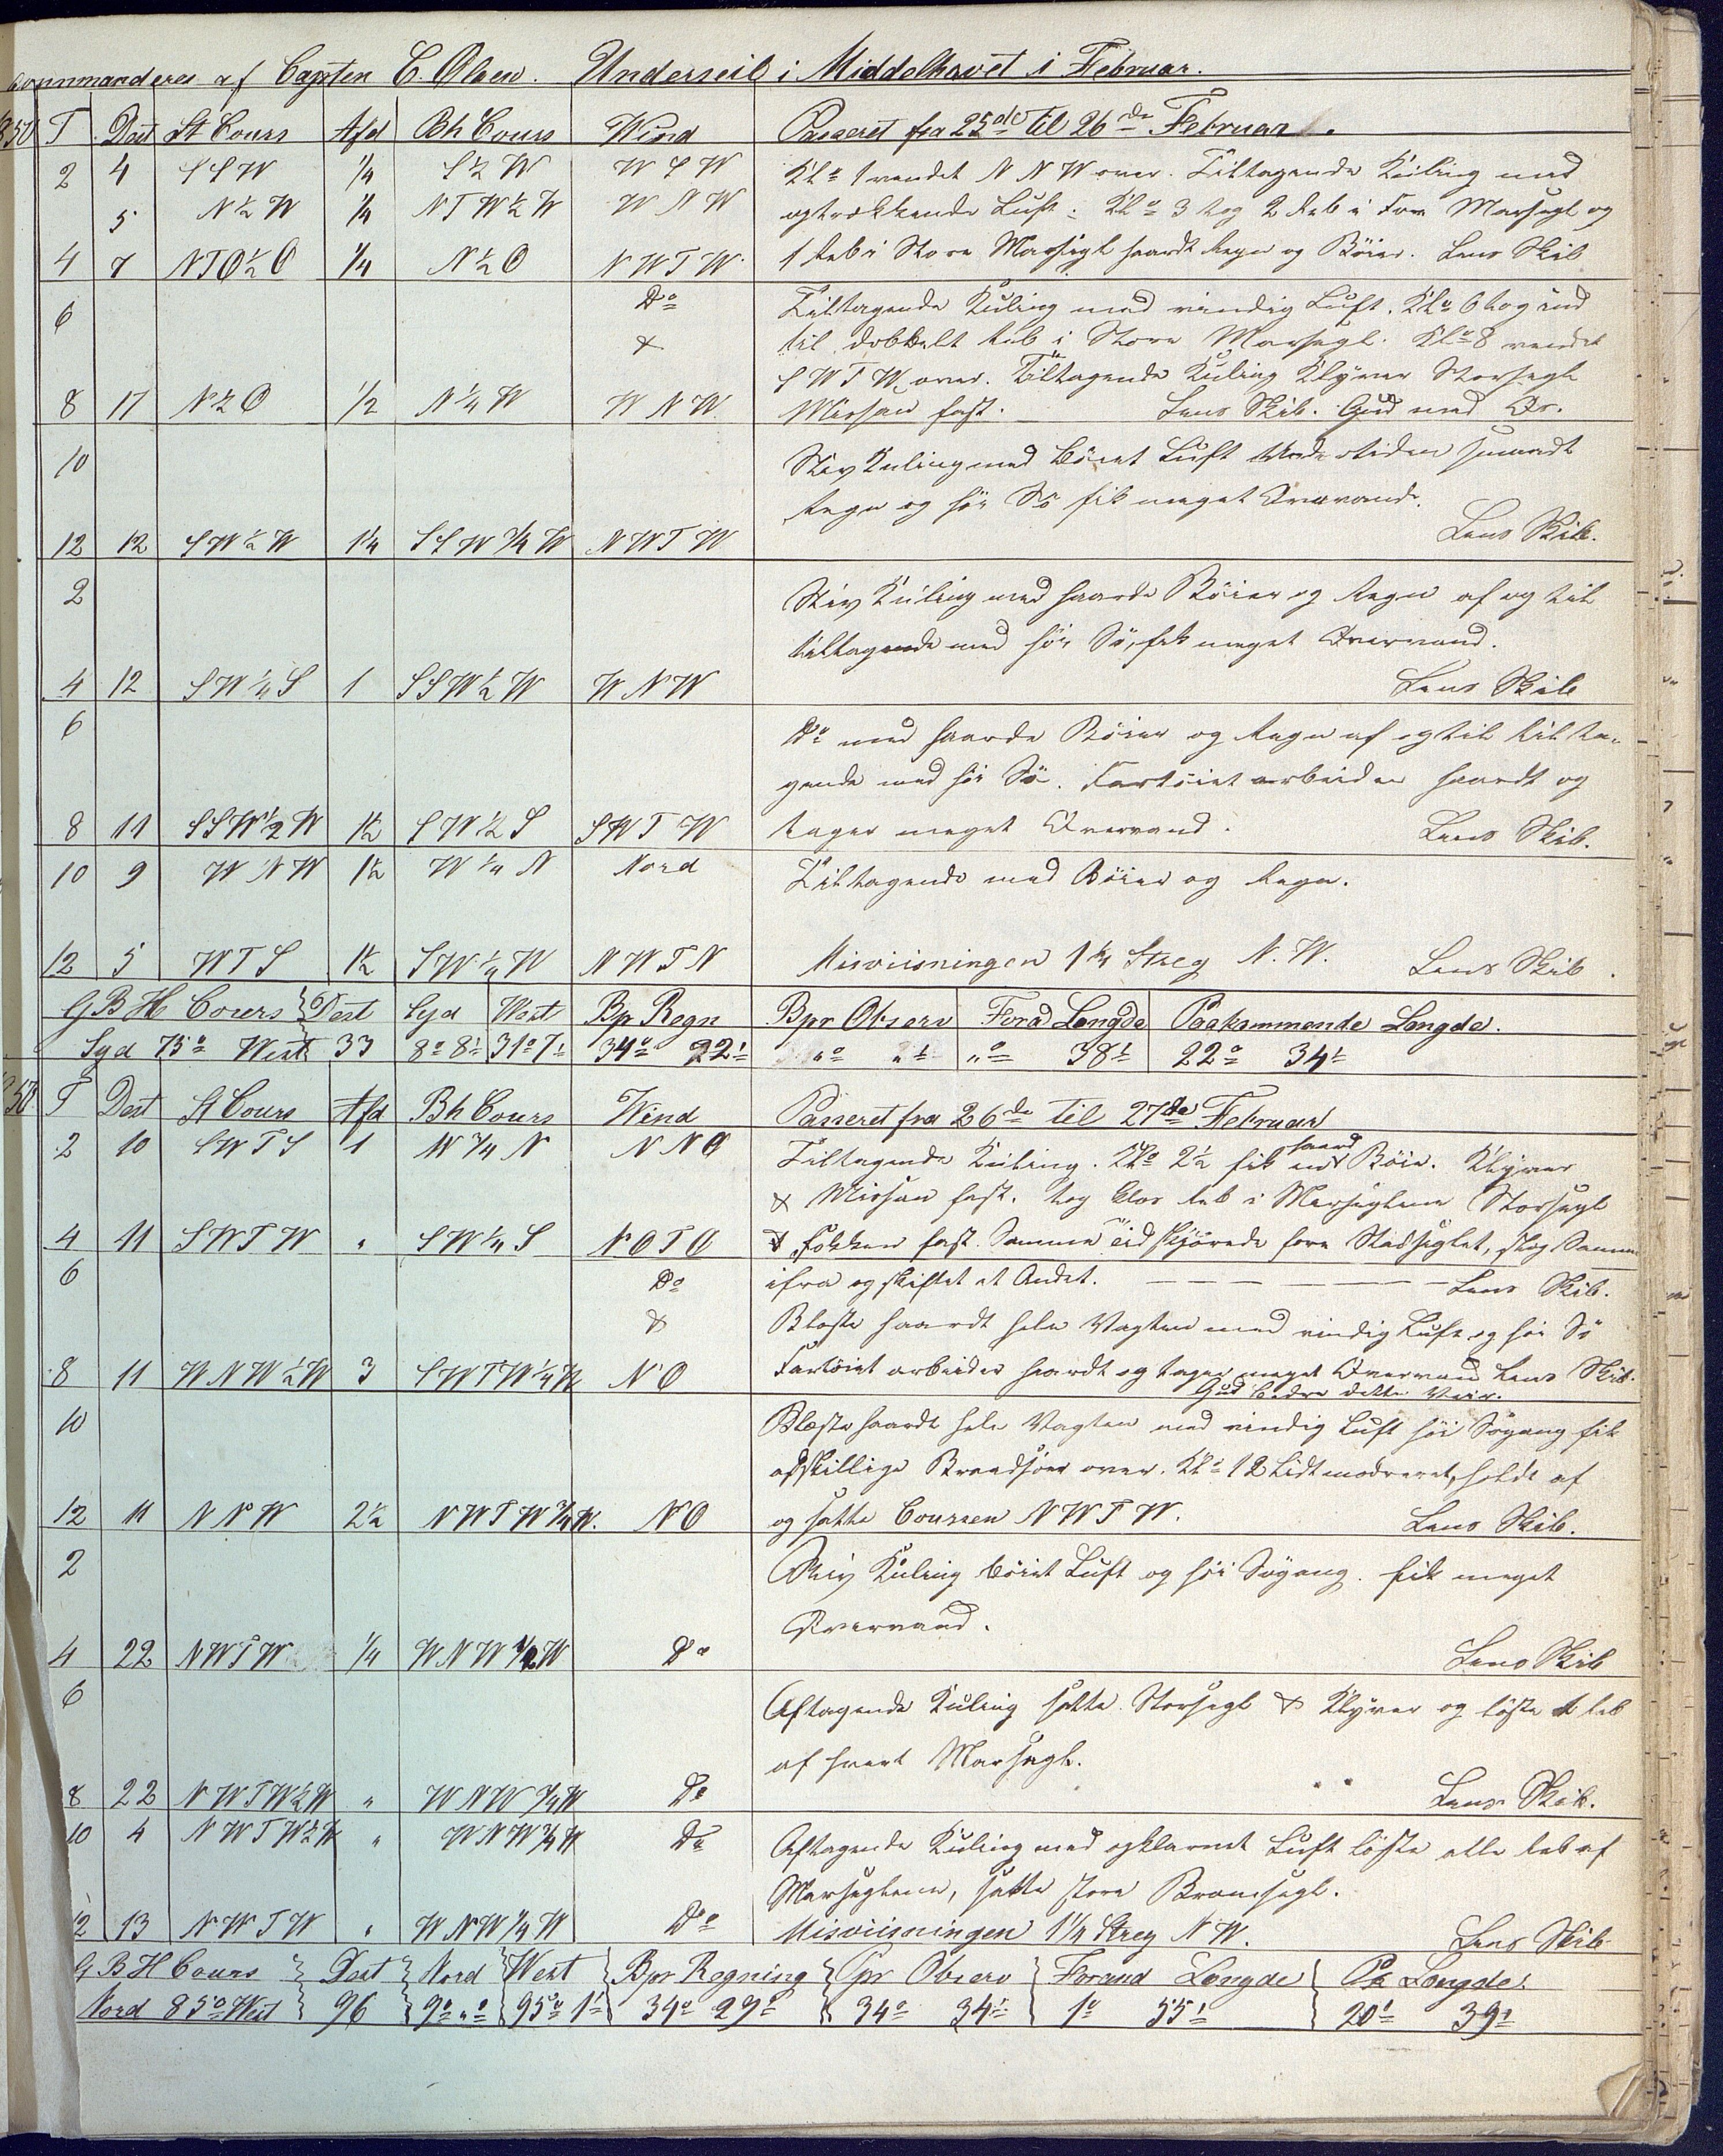 commanderes af Capten C. Olsen. Underseil i Middelhavet i Februar.
1850 T Dist St Cours Afd Bh Cours Wind Passeret fra 25de til 26de Februar.
2 4 SSW 1/4 S 1/2 W WSW Kl° 1 vendt NNW over. Tiltagende Kuling med
5 N 1/2 W 1/4 NTW 1/2 W WNW optrækkende Luft. Kl° 3 tog 2 Reb i For Mærsegl og
4 7 NTO 1/2 O 1/4 N 1/2 O NWTW 1 Reb i Store Mærsegl haardt Regn og Böier. Lens Skib
6 D° Tiltagende Kuling med vindig Luft. Kl° 6 tog ind
& til dobbelt Reb i Store Mærsegl. Kl° 8 vendt
SWTW over. Tiltagende Kuling Klÿver Storsegl
8 17 N 1/2 O 1/2 N 1/4 W WNW Mesan fast. Lens Skib. Gud med Os.
10 Stiv Kuling med böiet Luft Undertiden smaadt
Regn og höi Sö fik meget Overvand.
12 12 SW 1/2 W 1 1/4 SSW 3/4 W NWTW Lens Skib.
2 Stiv Kuling med haarde Böier og Regn af og til
tiltagende med höi Sö, fik meget Overvand.
4 12 SW 1/4 S 1 SSW 1/2 W WNW Lens Skib
6 D° med haarde Böier og Regn af og til tilta-
gende med höi Sö. Fartöiet arbeider haardt og
8 11 SSW 1/2 W 1 1/2 SW 1/2 S SWTW tager meget Overvand. Lens Skib.
10 9 WNW 1 1/2 W 1/4 N Nord Tiltagende med Böier og Regn.
12 5 WTS 1 1/2 SW 1/2 W NWTN Misviisningen 1 1/4 Streg N.W. Lens Skib.
GBH Cours Dist Syd West Bp Regn Bpr Observ Forad Længde Paakommende Længde.
Syd 75° West 33 8° 8' 31° 7' 34° 22' "° "' "° 38' 22° 34'
1850 T Dist St Cours Afd Bh Cours Wind Passeret fra 26de til 27de Februar
2 10 SWTS 1 W 3/4 N NNO Tiltagende Kuling. Kl° 2 1/2 fik en haard Böie. Klÿver
& Mesan fast. tog Klos Reb i Mærseglene Storsegl
4 11 SWTW " SW 1/4 S NOTO & Fokken fast. Samme Tid skjörede fore Stagseglet, slog Samme
6 D° ifra og skiftet et Andet. — — — — — — — Lens Skib.
& Blæste haardt hele Vagten med vindig Luft og höi Sö
8 11 WNW 1/2 W 3 SWTW 1/4 W NO Fartöiet arbeider haardt og tager meget Overvand Lens Skib.
Gud bedre dette Veir.
10 Blæste haardt hele Vagten med vindig Luft höi Sögang fik
adskillige Braadsöer over. Kl° 12 Lidt modreret, holdt af
12 11 NNW 2 1/2 NWTW 3/4 W. NO og satte Coursen NWTW. Lens Skib.
2 Stiv Kuling böiet Luft og höi Sögang. fik meget
Overvand.
4 22 NWTW 1/4 WNW 1/2 W D° Lens Skib
6 Aftagende Kuling satte Storsegl & Klÿver og löste 1 Reb
af hvert Mærsegl.
8 22 NWTW 1/2 W " WNW 3/4 W D° Lens Skib.
10 4 NWTW 1/2 W " WNW 3/4 W D° Aftagende Kuling med opklaret Luft löste alle Reb af
Mærseglene, satte store Bramsegl.
12 13 NWTW " WNW 1/4 W D° Misviisningen 1 1/4 Streg NW. Lens Skib
GBH Cours Dist Nord West Bpr Regning Bpr Observ Forand Længde Pk Længde.
Nord 85° West 96 9° "° 95° 1' 34° 29' 34° 34' 1° 55' 20' 39'